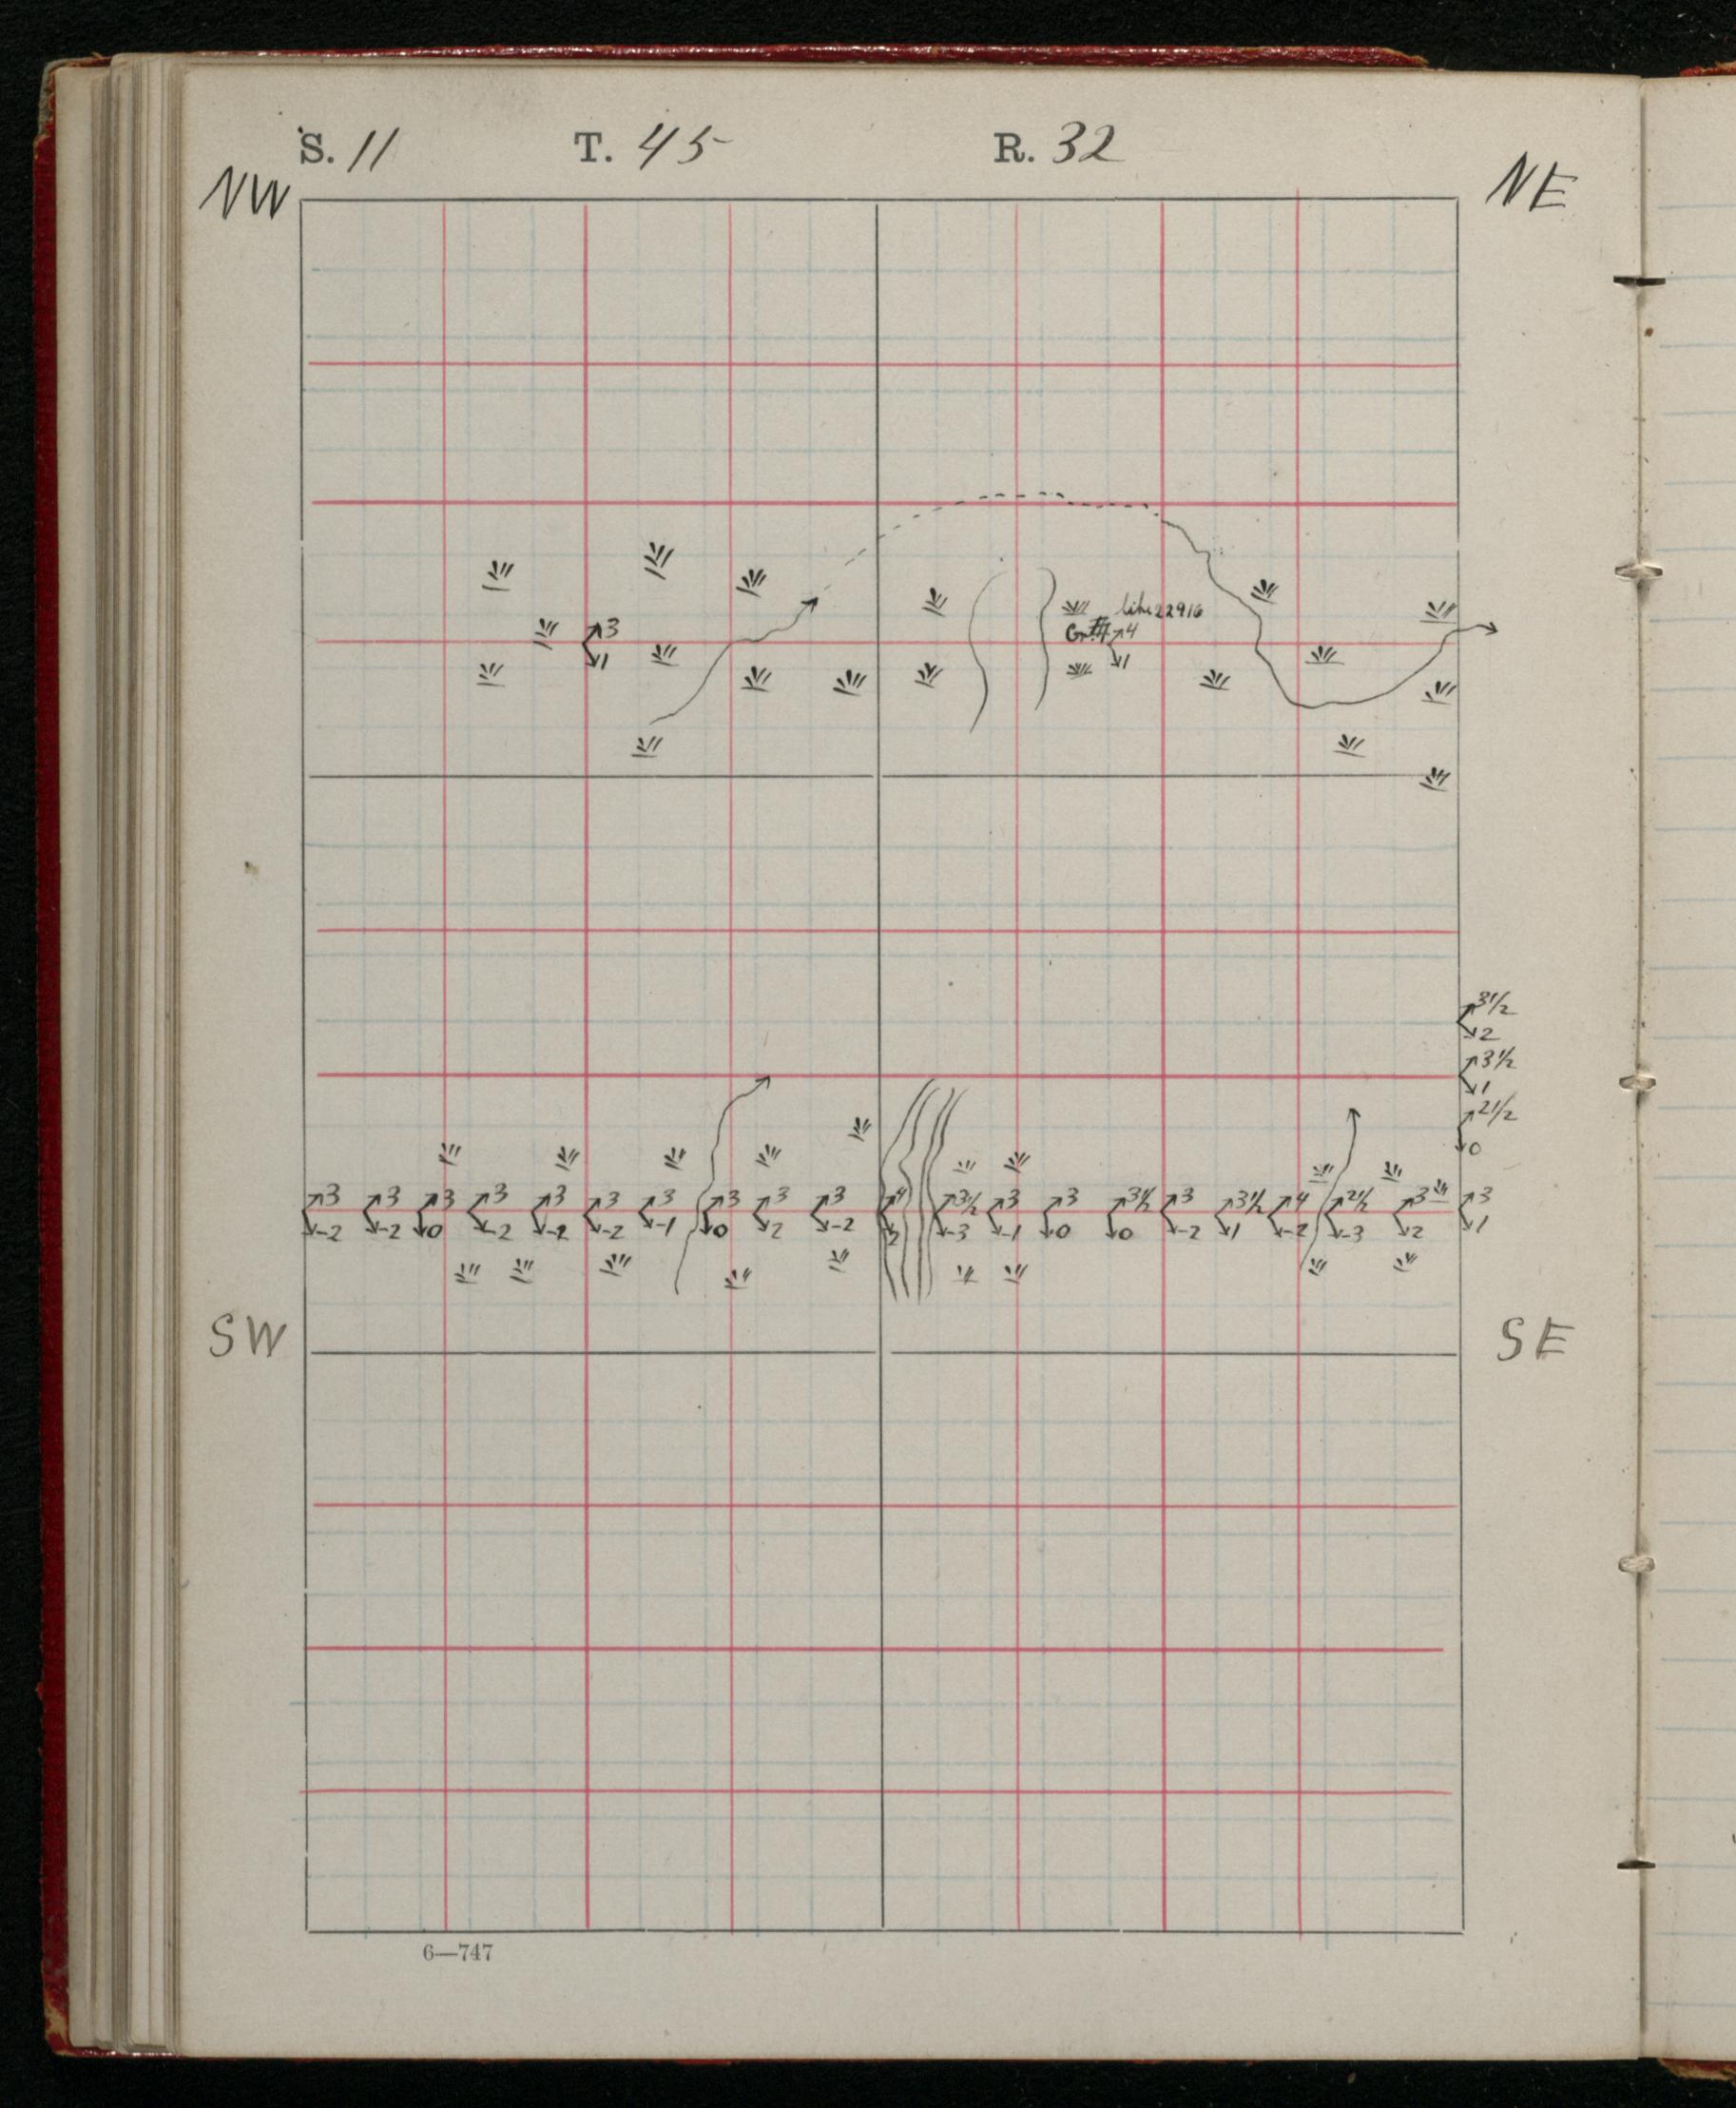 S. 11 T. 45 R. 32
NW NE
like 22916
3 4
1 1
3½
2
3½
1
2½
0
3 3 3 3 3 3 3 3 3 3 4 3½ 3 3 3½ 3 3½ 4 2½ 3 3
-2 -2 0 -2 -2 -2 -1 0 2 -2 -3 -1 0 0 -2 1 -2 -3 2 1
SW SE
6—747